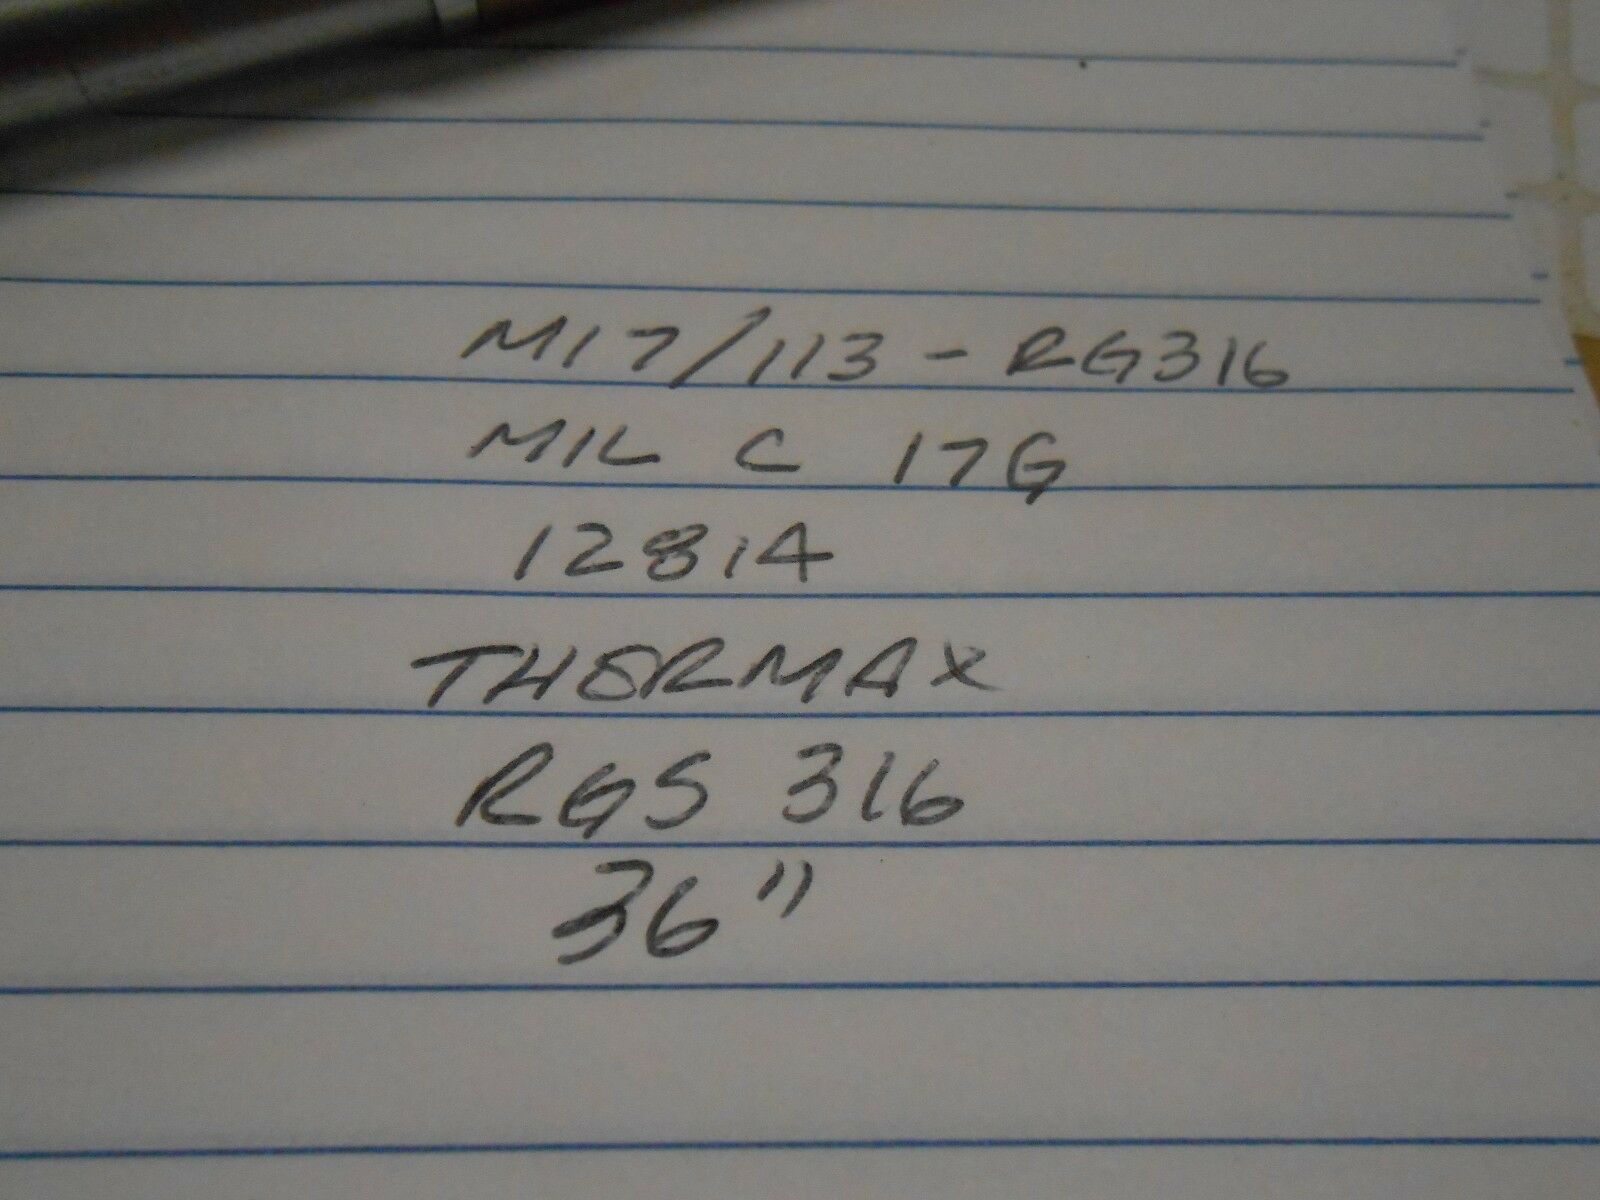 M17/113 - RG316
MIL C 17G
12814
THERMAX
RGS 316
36"